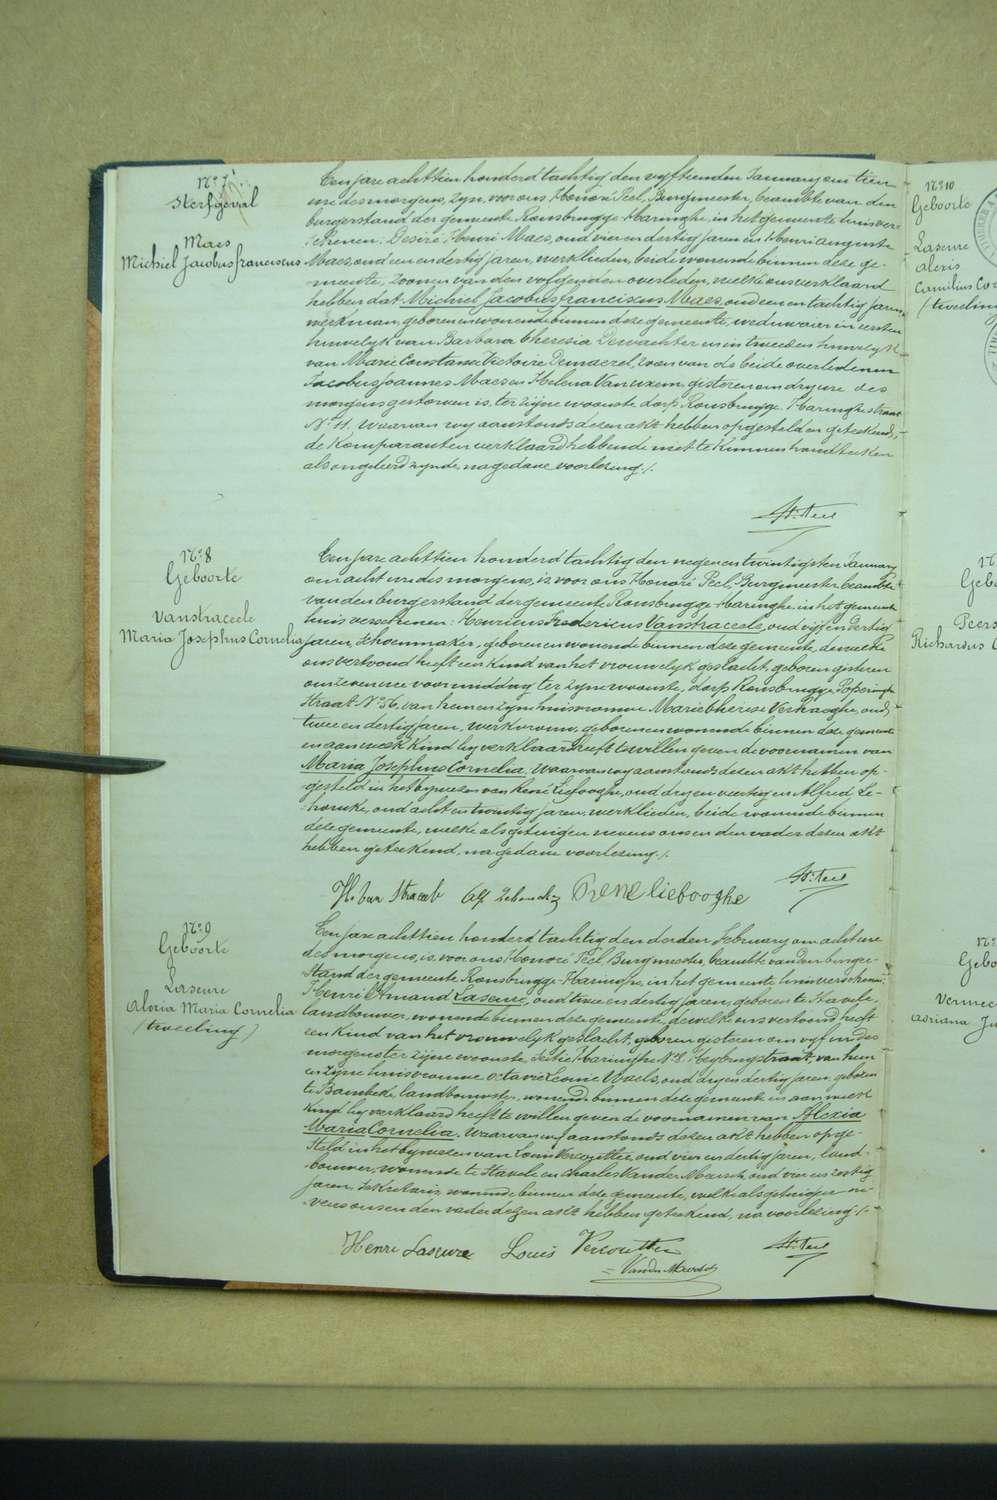 N° 7
Sterfgeval
Maes
Michiel Jacobus franciscus
Een jare achttien honderd tachtig den vyftienden January om tien
ure des morgens, zyn voor ons Honoré Peel, Burgmeester, beambte van den
burgerstand der gemeente Rousbrugge-Haringhe, in het gemeente huis ver-
schenen: Desiré Henri Maes, oud vier en dertig jaren en Henri auguste
Maes, oud een en dertig jaren, werklieden, beide wonende binnen deze ge-
meente, zoonen van den volgenden overleden, welke ons verklaard
hebben dat Michiel Jacobus franciscus Maes, oud een en tachtig jaren,
werkman, geboren en wonende binnen deze gemeente, weduwaar in eersten
huwelyk van Barbara theresia Dewachter en in tweeden huwelyk
van Marie Constance Victoire Demaerel, zoon van de beide overledenen
Jacobus Joannes Maes en Helena Vanuxem, gisteren om dry ure des
morgens gestorven is, ter zyne woonste dorp Rousbrugge, Haringhestraat
N° 11. Waarvan wy aanstonds dezen akt hebben opgesteld en geteekend,
de komparanten verklaard hebbende niet te kunnen handteeken
als ongeleerd zynde, na gedane voorlezing /.
H. Peel
N° 8
Geboorte
Vanstraceele
Maria Josephus Cornelia
Een jare achttien honderd tachtig den negen en twintigsten January
om acht ure des morgens, is voor ons Honoré Peel, Burgmeester beambte
van den burgerstand der gemeente Rousbrugge-Haringhe, in het gemeente
huis verschenen: Henricus Fredericus Vanstraceele, oud vyf en dertig
jaren, schoenmaker, geboren en wonende binnen deze gemeente, dewelke
ons vertoond heeft een kind van het vrouwelyk geslacht, geboren gisteren
om zeven ure voormiddag ter zyne woonste, dorp Rousbrugge Poperinghe
straat N° 56, van hem en zyne huisvrouwe Marie therese Verhaeghe, oud
twee en dertig jaren, werkvrouw, geboren en wonende binnen deze gemeente
en aan welk kind hy verklaard heeft te willen geven de voornamen van
Maria Josephus Cornelia. Waarvan wy aanstonds dezen akt hebben op-
gesteld in het bywezen van René Liefooghe, oud dry en veertig en Alfred Le-
houcke, oud acht en twintig jaren, werklieden, beide wonende binnen
deze gemeente, welke als getuigen nevens ons en den vader dezen akt
hebben geteekend, na gedane voorlezing /.
H. Peel
H. Van Straceele Alf Lehoucke Rene liefooghe
N° 9
Geboorte
Laseure
Alexia Maria Cornelia
(tweeling)
Een jare achttien honderd tachtig den derden February om acht ure
des morgens, is voor ons Honoré Peel Burgmeester, beambte van den burger-
stand der gemeente Rousbrugge-Haringhe, in het gemeente huis verschenen:
Henri Amand Laseure, oud twee en dertig jaren, geboren te Stavele,
landbouwer, wonende binnen deze gemeente, dewelke ons vertoond heeft
een kind van het vrouwelyk geslacht, geboren gisteren om vyf ure des
morgens ter zyne woonste, sectie Haringhe N° 8, straat, van hem
en zyne huisvrouwe octavie Leonie, oud dry en dertig jaren, geboren
te Bambeke, landbouwster, wonende binnen deze gemeente en aan welk
kind hy verklaard heeft te willen geven de voornamen van Alexia
Maria Cornelia. Waarvan wy aanstonds dezen akt hebben opge-
steld in het bywezen van Louis Vercoutter, oud vier en dertig jaren, land-
bouwer, wonende te Stavele en Charles Vander Meersch, oud vier en zestig
jaren, sekretaris, wonende binnen deze gemeente, welke als getuigen ne-
vens ons en den vader dezen akt hebben geteekend, na voorlezing /.
Henri Laseure Louis Vercoutter H. Peel
Vander Meersch
N° 10
Geboorte
Laseure
alexis
Camilius Cor
(tweeling
Geb
Peers
Richardus C
Gebo
Vermee
adriana Ju